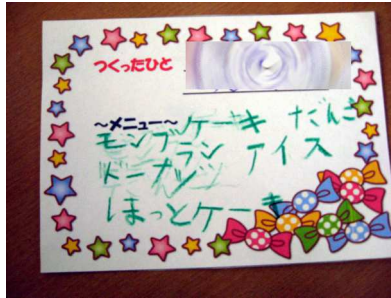 つくったひと
～メニュー～
モンブケーキ だんご
ラン アイス
ドーナッツ
ほっとケーキ